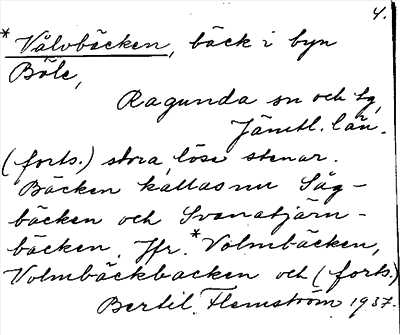 4.
*Vålvbäcken, bäck i byn
Böle,
Ragunda sn och tg,
Jämtl. län.
(forts.) stora, lösa stenar.
Bäcken kallas nu Såg-
bäcken och Svanatjärn-
bäcken. Jfr. *Volmbäcken,
Volmbäckbacken och (forts.)
Bertil Flemström 1937.